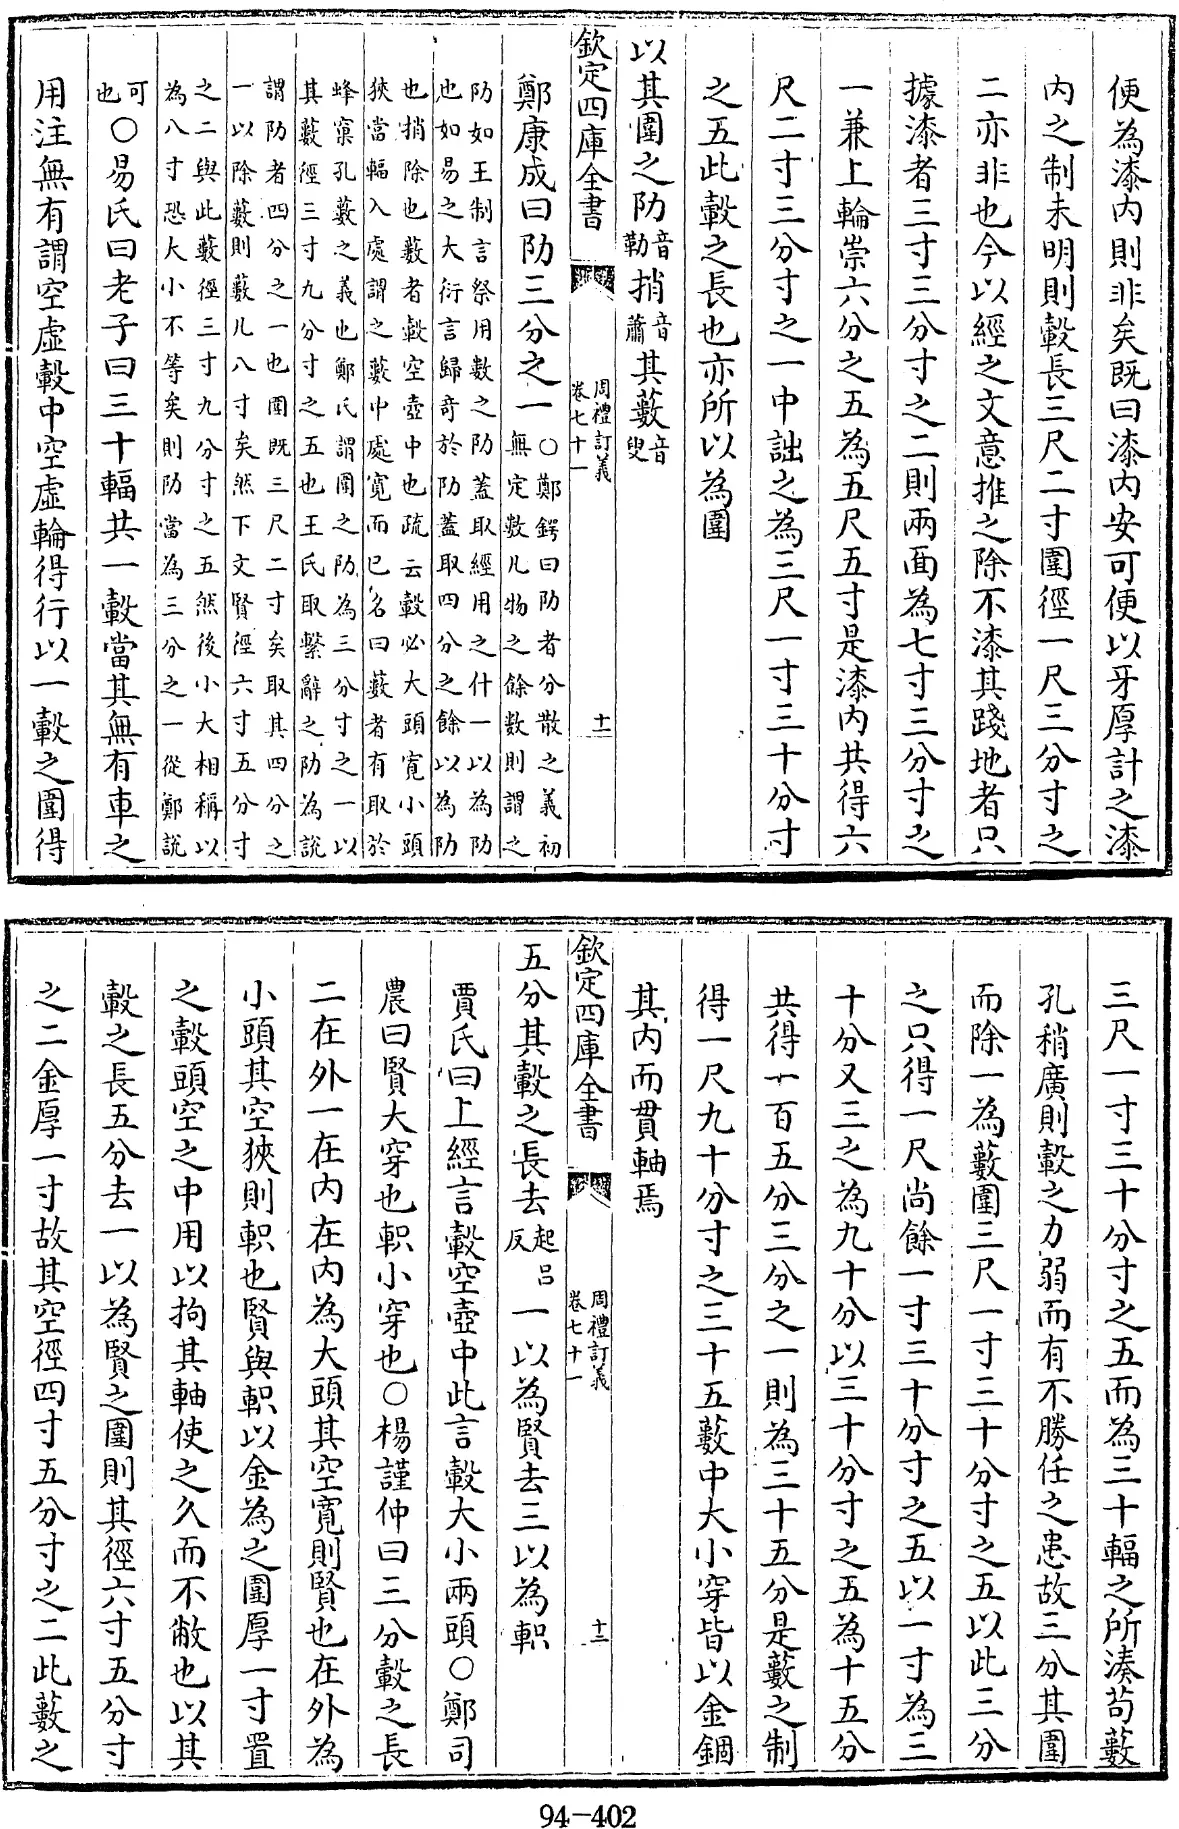 便為漆内則非矣既曰漆内安可便以牙厚計之漆
内之制未明則轂長三尺二寸圍徑一尺三分寸之
二亦非也今以經之文意推之除不漆其踐地者只
據漆者三寸三分寸之二則兩面為七寸三分寸之
一兼上輪崇六分之五為五尺五寸是漆内共得六
尺二寸三分寸之一中詘之為三尺一寸三十分寸
之五此轂之長也亦所以為圍
以其圍之阞音勒捎音蕭其藪音叟
欽定四庫全書 周禮訂義 卷七十一 十一
鄭康成曰阞三分之一○鄭鍔曰阞者分散之義初
無定數凡物之餘數則謂之
阞如王制言祭用數之阞蓋取經用之什一以為阞
也如易之大衍言歸奇於阞蓋取四分之餘以為阞
也捎除也藪者轂空壺中也疏云轂必大頭寛小頭
狹當輻入處謂之藪中處寛而已名曰藪者有取於
蜂窠孔藪之義也鄭氏謂圍之阞為三分寸之一以
其藪徑三寸九分寸之五也王氏取繫辭之阞為説
謂阞者四分之一也圍既三尺二寸矣取其四分之
一以除藪則藪凡八寸矣然下文賢徑六寸五分寸
之二與此藪徑三寸九分寸之五然後小大相稱以
為八寸恐大小不等矣則阞當為三分之一從鄭説
可也○易氏曰老子曰三十輻共一轂當其無有車之
用注無有謂空虚轂中空虚輪得行以一轂之圍得
三尺一寸三十分寸之五而為三十輻之所湊茍藪
孔稍廣則轂之力弱而有不勝任之患故三分其圍
而除一為藪圍三尺一寸三十分寸之五以此三分
之只得一尺尚餘一寸三十分寸之五以一寸為三
十分又三之為九十分以三十分寸之五為十五分
共得一百五分三分之一則為三十五分是藪之制
得一尺九十分寸之三十五藪中大小穿皆以金錮
其内而貫軸焉
欽定四庫全書 周禮訂義 卷七十一 十二
五分其轂之長去起吕反一以為賢去三以為軹
賈氏曰上經言轂空壺中此言轂大小兩頭○鄭司
農曰賢大穿也軹小穿也○楊謹仲曰三分轂之長
二在外一在内在内為大頭其空寛則賢也在外為
小頭其空狹則軹也賢與軹以金為之圍厚一寸置
之轂頭空之中用以拘其軸使之久而不敝也以其
轂之長五分去一以為賢之圍則其徑六寸五分寸
之二金厚一寸故其空徑四寸五分寸之二此藪之
94-402